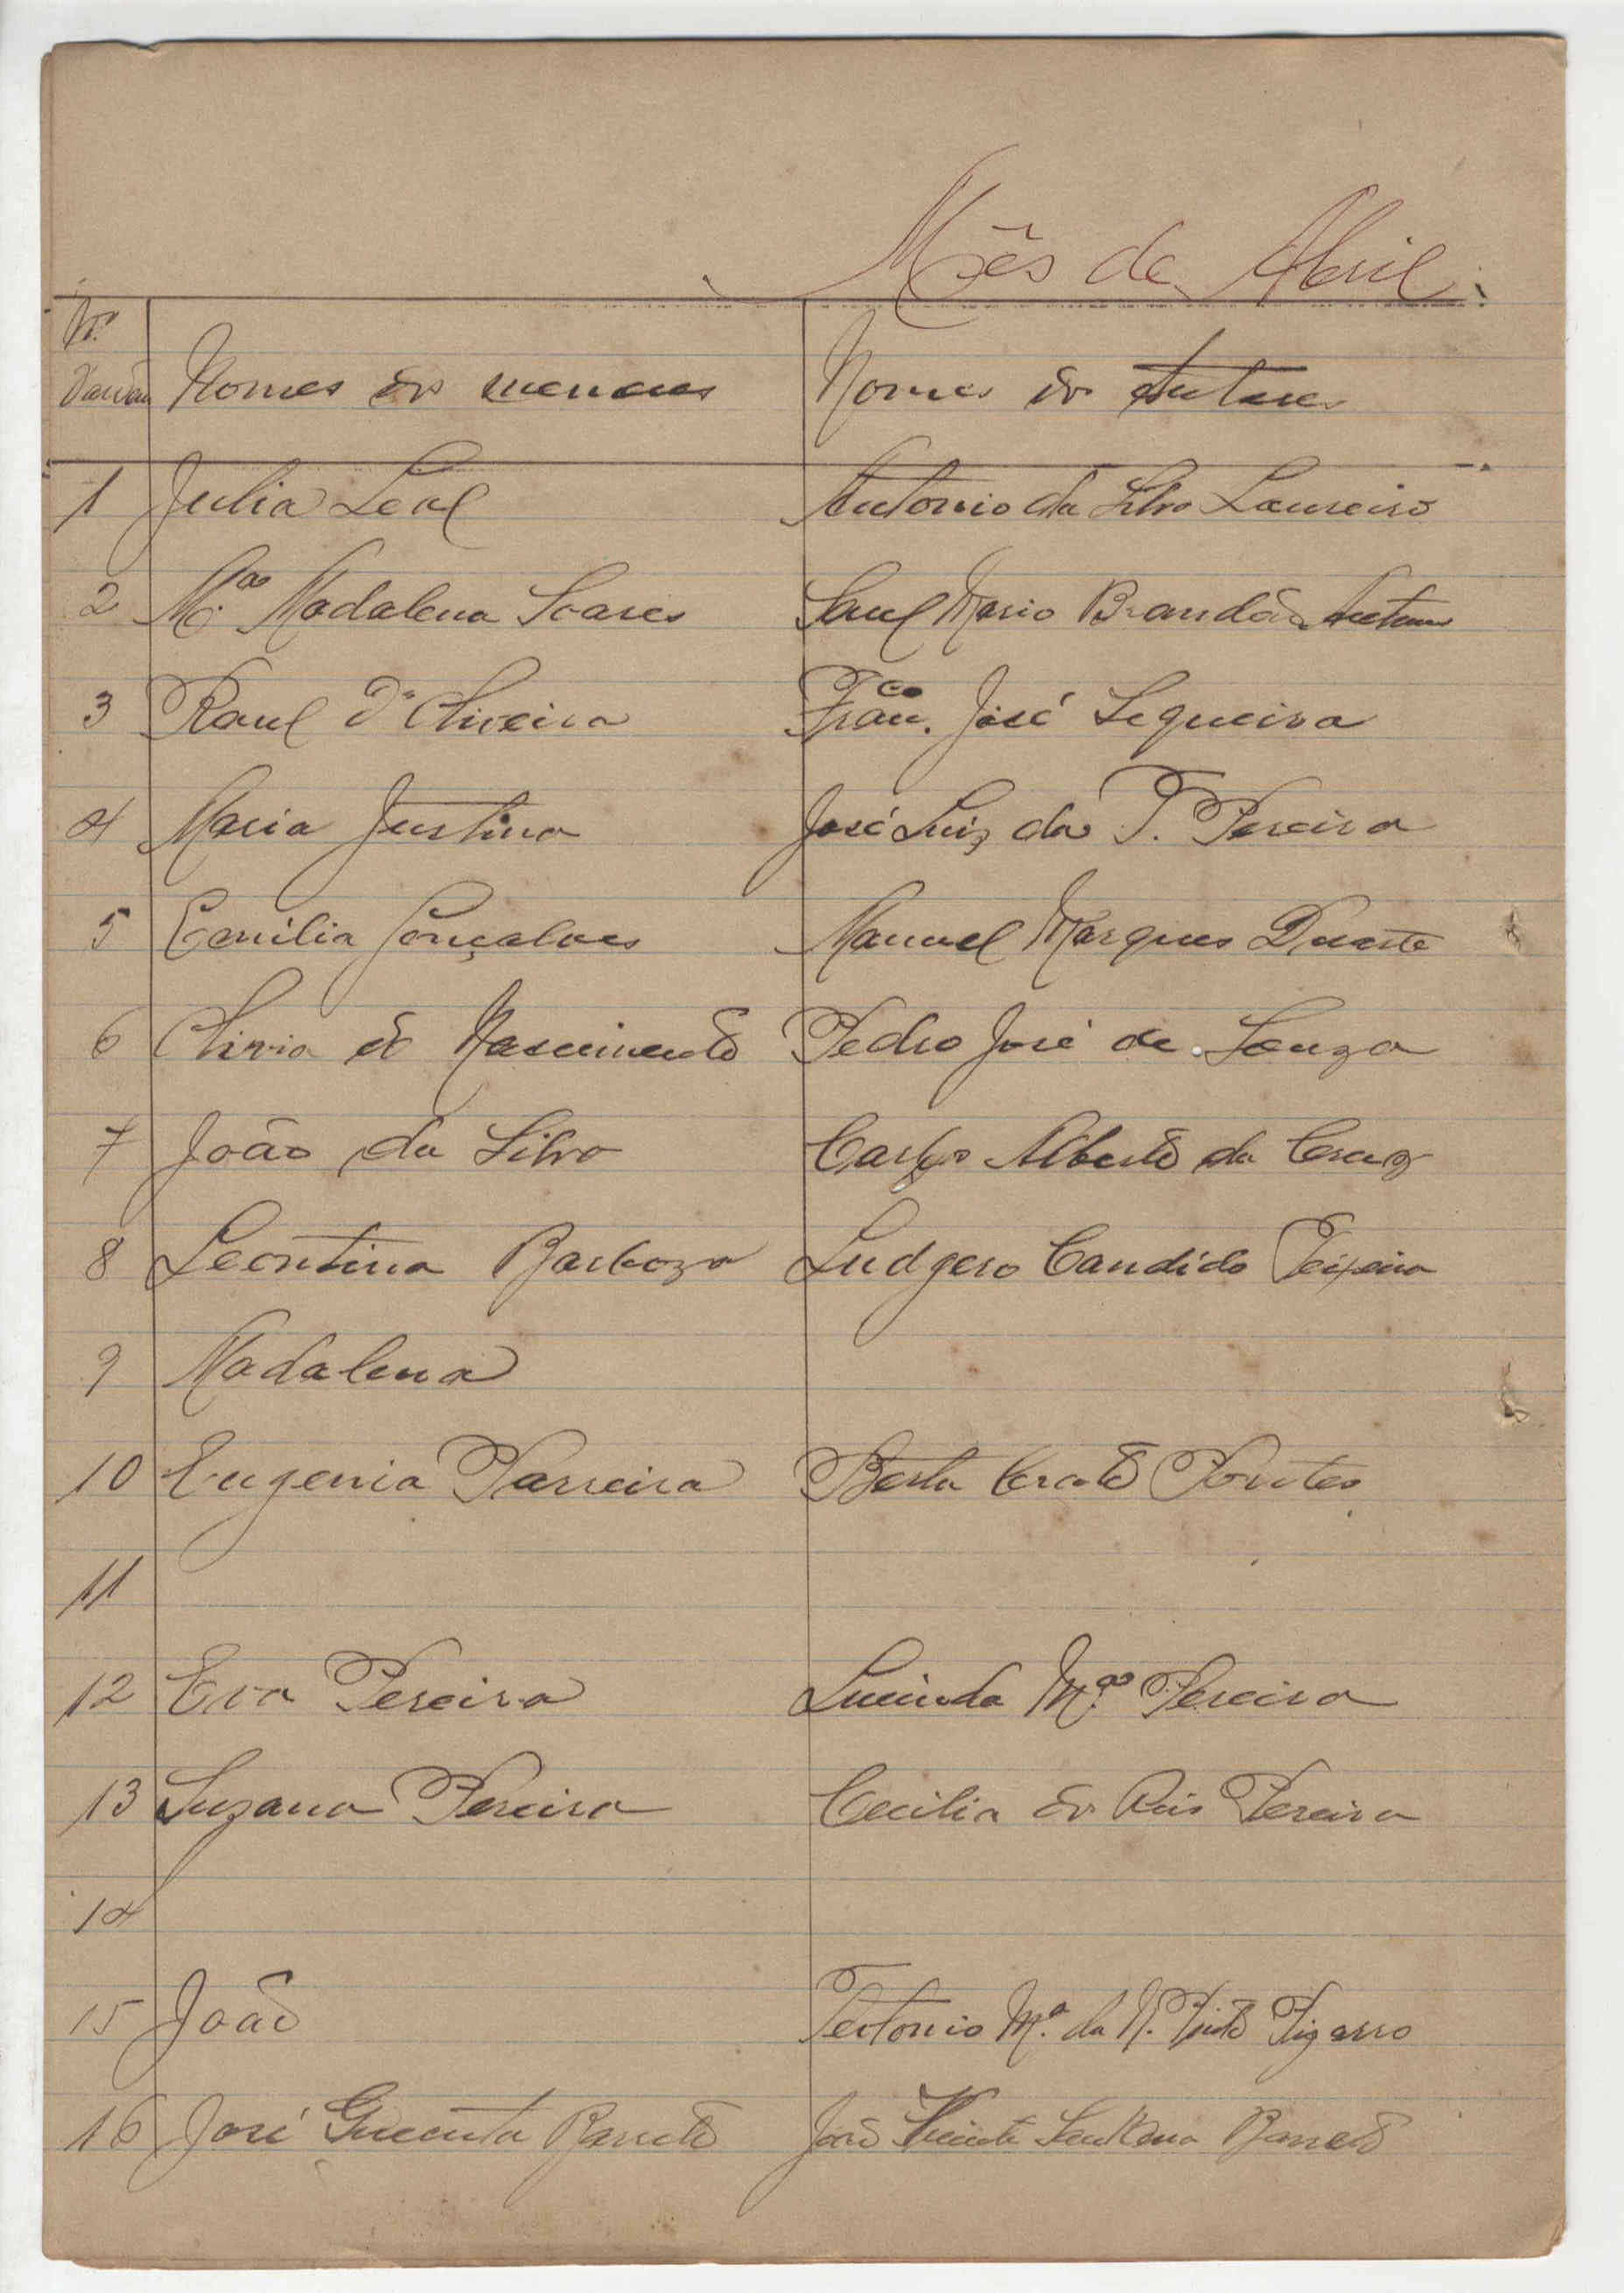 Mês de Abril
Nº
Nomes dos menores Nomes dos tutores
1 Julia Leal Antonio da Silva Loureiro
2 M.ª Madalena Soares Saul Mario Brandão Antunes
3 Raul d'Oliveira Fran.co José Sequeira
4 Maria Justina José Luiz da T. Pereira
5 Emilia Gonçalves Manuel Marques Duarte
6 Olivia do Nascimento Pedro José de Souza
7 João da Silva Carlos Alberto da Cruz
8 Leontina Barboza Ludgero Candido Teixeira
9 Madalena
10 Eugenia Parreira Berta Crato Pontes
11
12 Eva Pereira Lucinda M.ª Pereira
13 Suzana Pereira Cecilia dos Reis Pereira
14
15 João Teotonio M.ª da N. Pinto Pizarro
16 José Barreto João Vicente Barreto